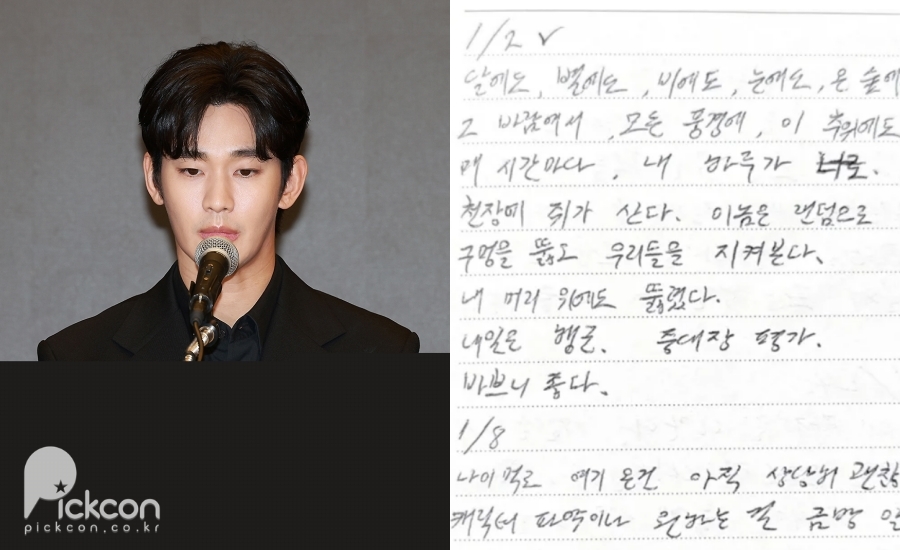 1/2 ✓
달에도, 별에도, 비에도, 눈에도, 온 숲에
그 바람에서, 모든 풍경에, 이 추위에도
매 시간마다, 내 하루가 너로.
천장에 쥐가 산다. 이놈은 랜덤으로
구멍을 뚫고 우리들을 지켜본다.
내 머리 위에도 뚫렸다.
내일은 행군. 중대장 평가.
바쁘니 좋다.
1/8
나이 먹고 여기 온건 아직 상당히 괜찮
캐릭터 파악이나 원하는 걸 금방
Pickcon
pickcon.co.kr